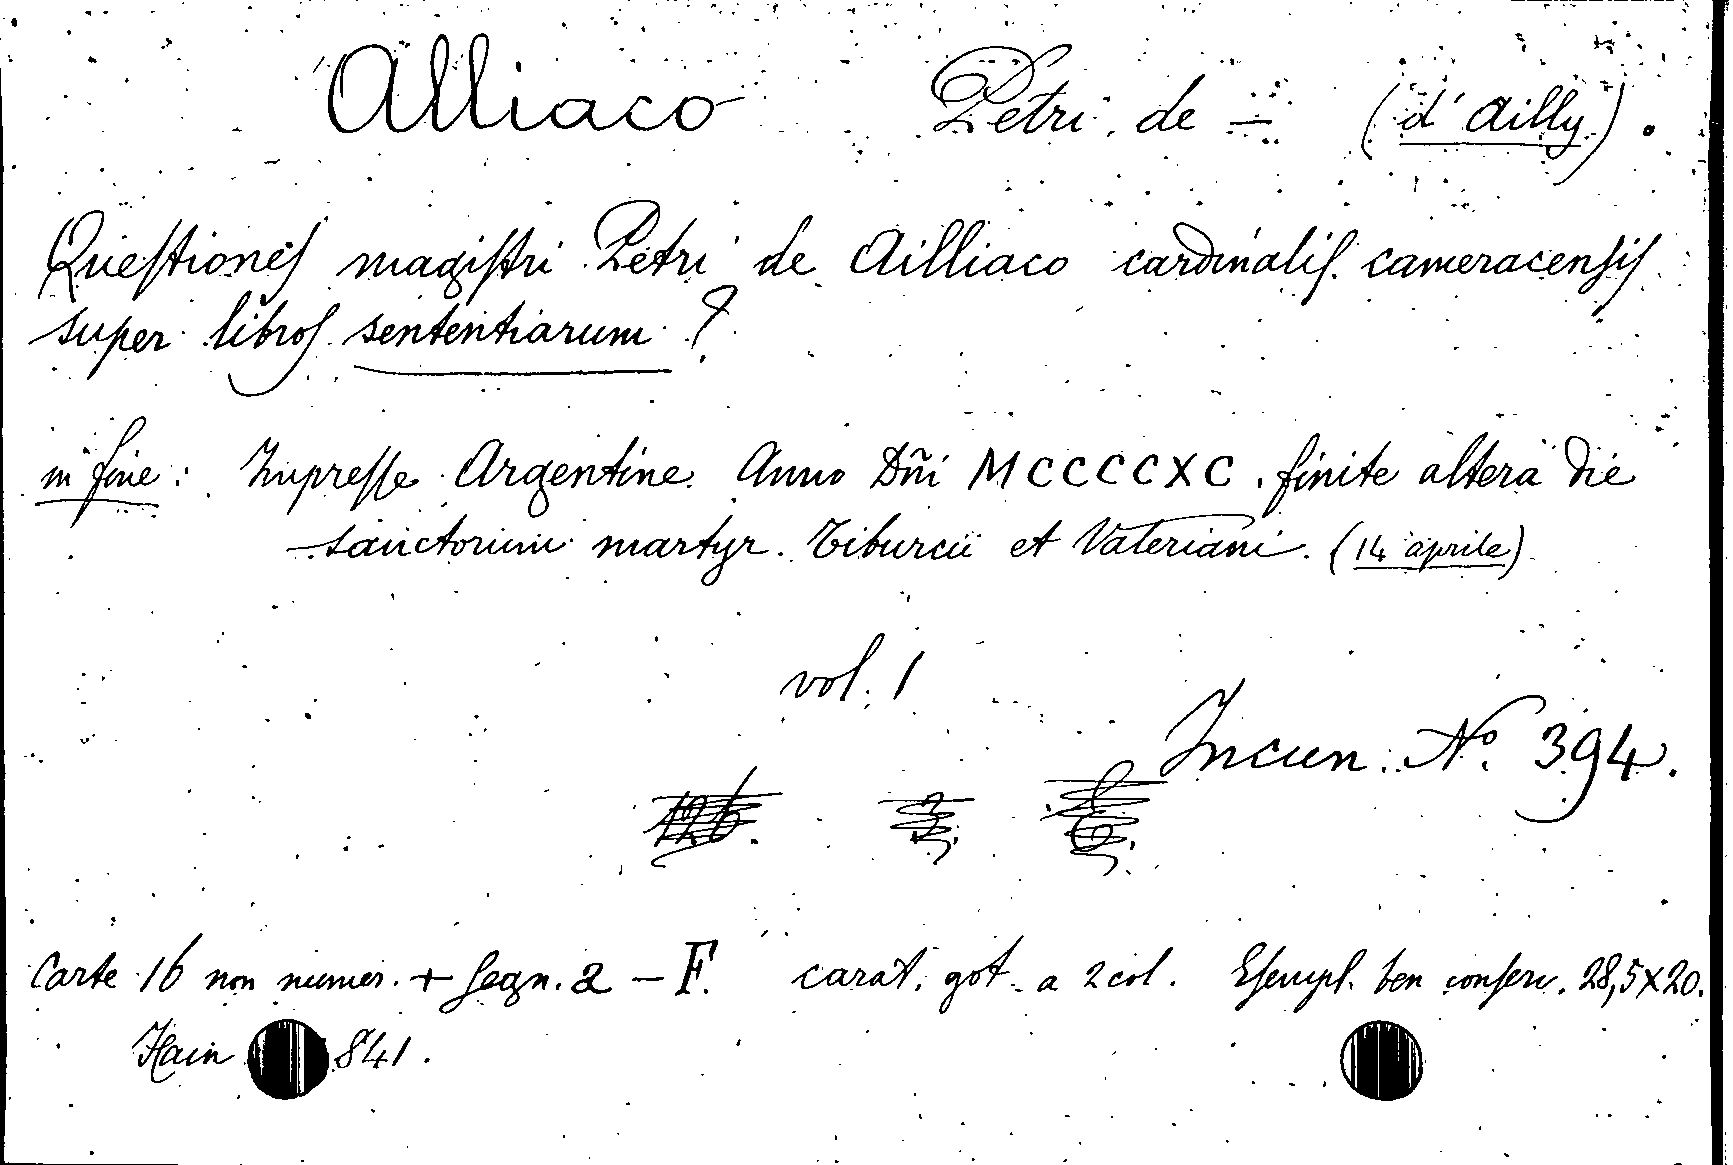 Alliaco Petri de — (d'Ailly).
Questiones magistri Petri de Ailliaco cardinalis cameracensis
super libros sententiarum ?
in fine: Impresse Argentine. Anno Dñi MCCCCXC. finite altera die
sanctorum martyr. Tiburcii et Valeriani. (14 aprile)
vol. 1
Incun. No. 394.
126. 3.
Carte 16 non numer. + segn. a - F. carat. got. a 2 col. Esempl. ben conserv. 28,5x20.
Hain 841.